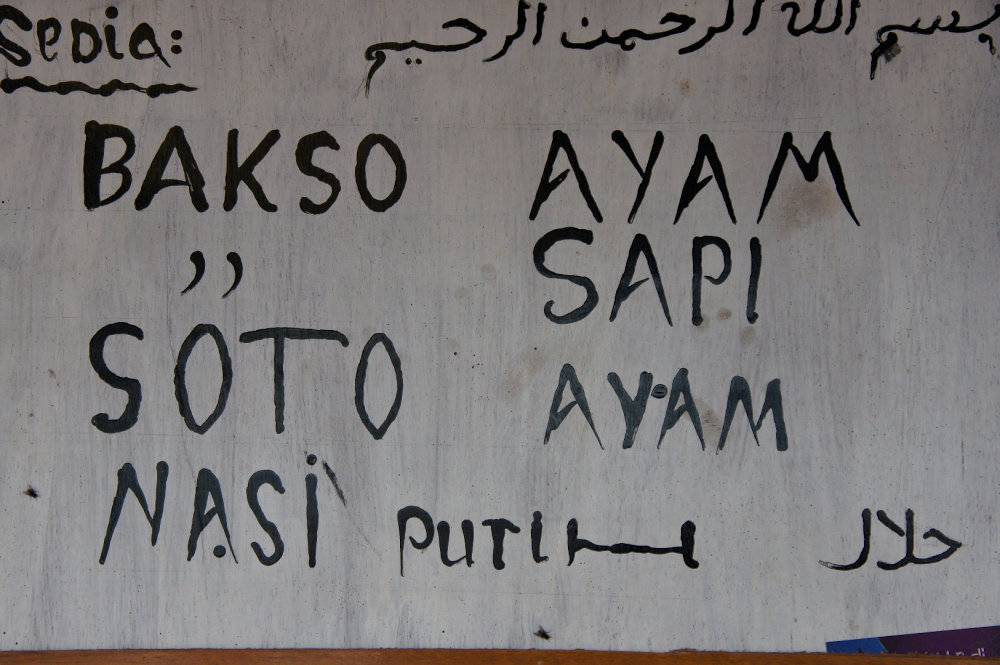 Sedia: بسم الله الرحمن الرحيم
BAKSO AYAM
,, SAPI
SOTO AYAM
NASI PUTIH حلال